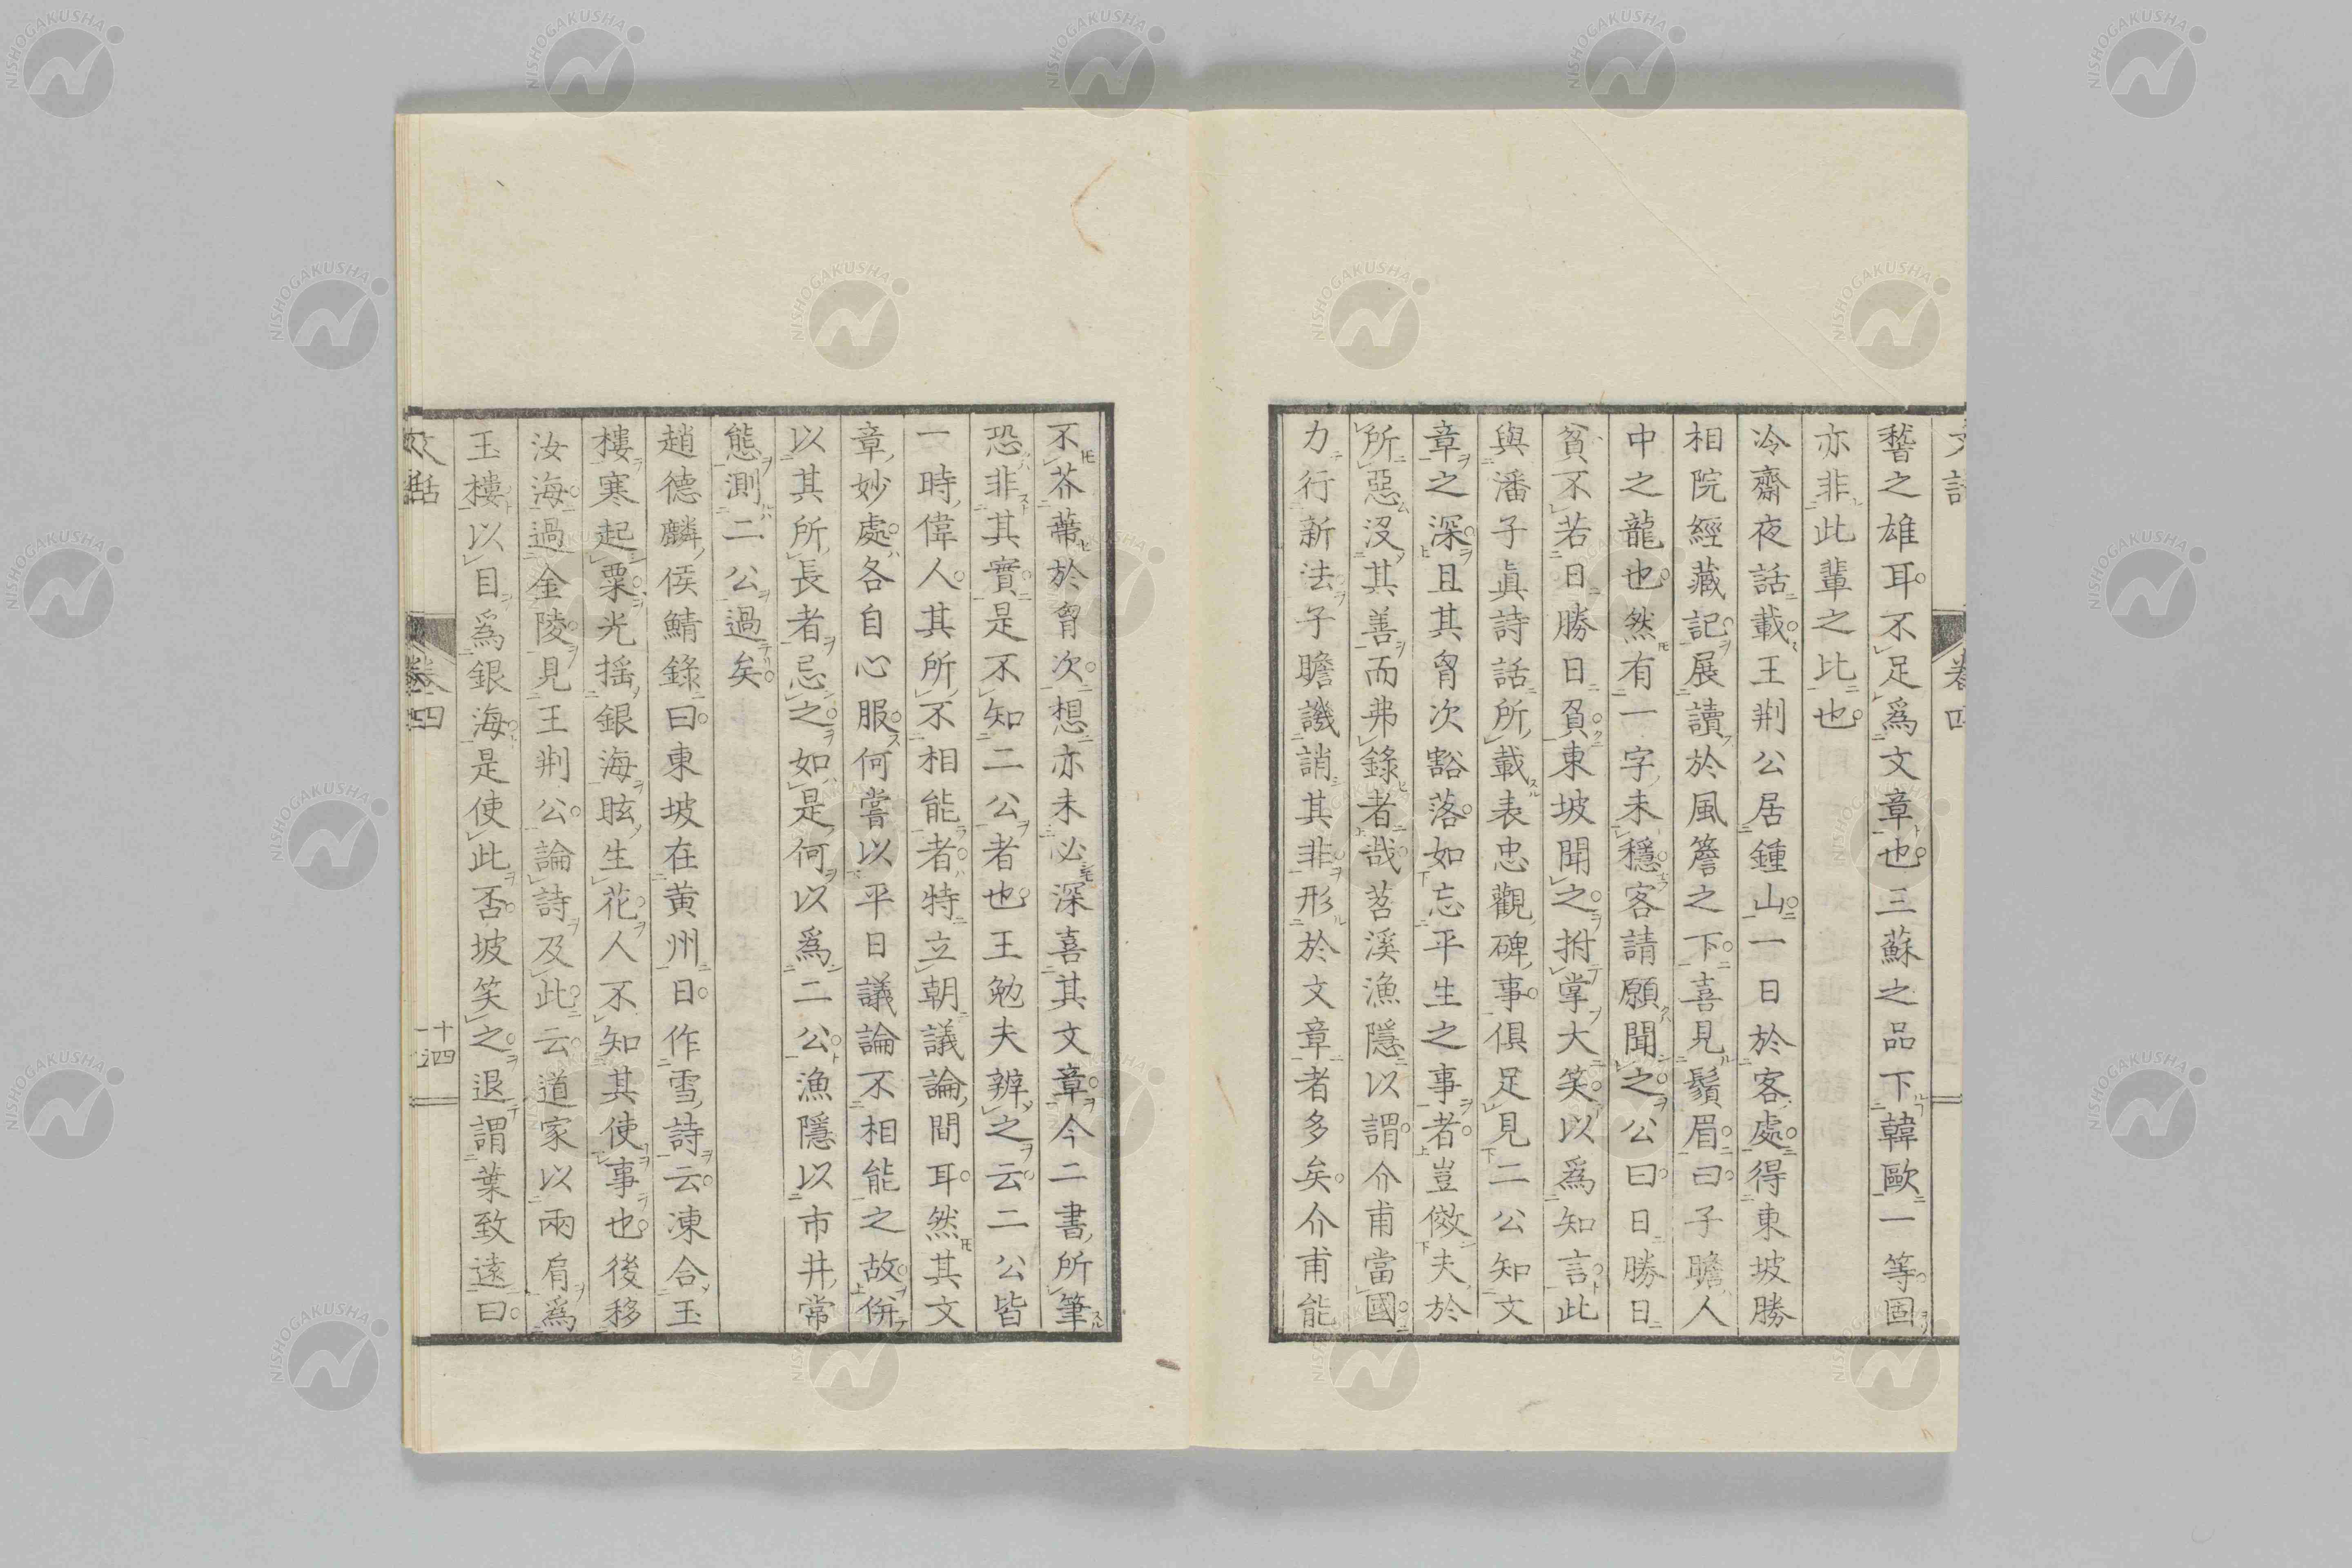 蟄之雄耳不足爲文章也三蘇之品下韓歐一等固
亦非此輩之比也
冷齋夜話載王荆公居鍾山一日於客處得東坡勝
相院經藏記展讀於風簷之下喜見鬚眉曰子瞻人
中之龍也然有一字未穩客請願聞之公曰日勝日
貧不若日勝日負東坡聞之拊掌大笑以爲知言此
與潘子眞詩話所載表忠觀碑事俱足見二公知文
章之深且其胷次豁落如忘平生之事者豈傚夫於
所惡沒其善而弗錄者哉苕溪漁隱以謂介甫當國
力行新法子瞻譏誚其非形於文章者多矣介甫能
不芥蔕於胷次想亦未必深喜其文章今二書所筆
恐非其實是不知二公者也王勉夫辨之云二公皆
一時偉人其所不相能者特立朝議論間耳然其文
章妙處各自心服何嘗以平日議論不相能之故併
以其所長者忌之如是何以爲二公漁隱以市井常
態測二公過矣
趙德麟侯鯖錄曰東坡在黄州日作雪詩云凍合玉
樓寒起粟光搖銀海眩生花人不知其使事也後移
汝海過金陵見王荆公論詩及此云道家以兩肩爲
玉樓以目爲銀海是使此否坡笑之退謂葉致遠曰
文話
卷四
十四